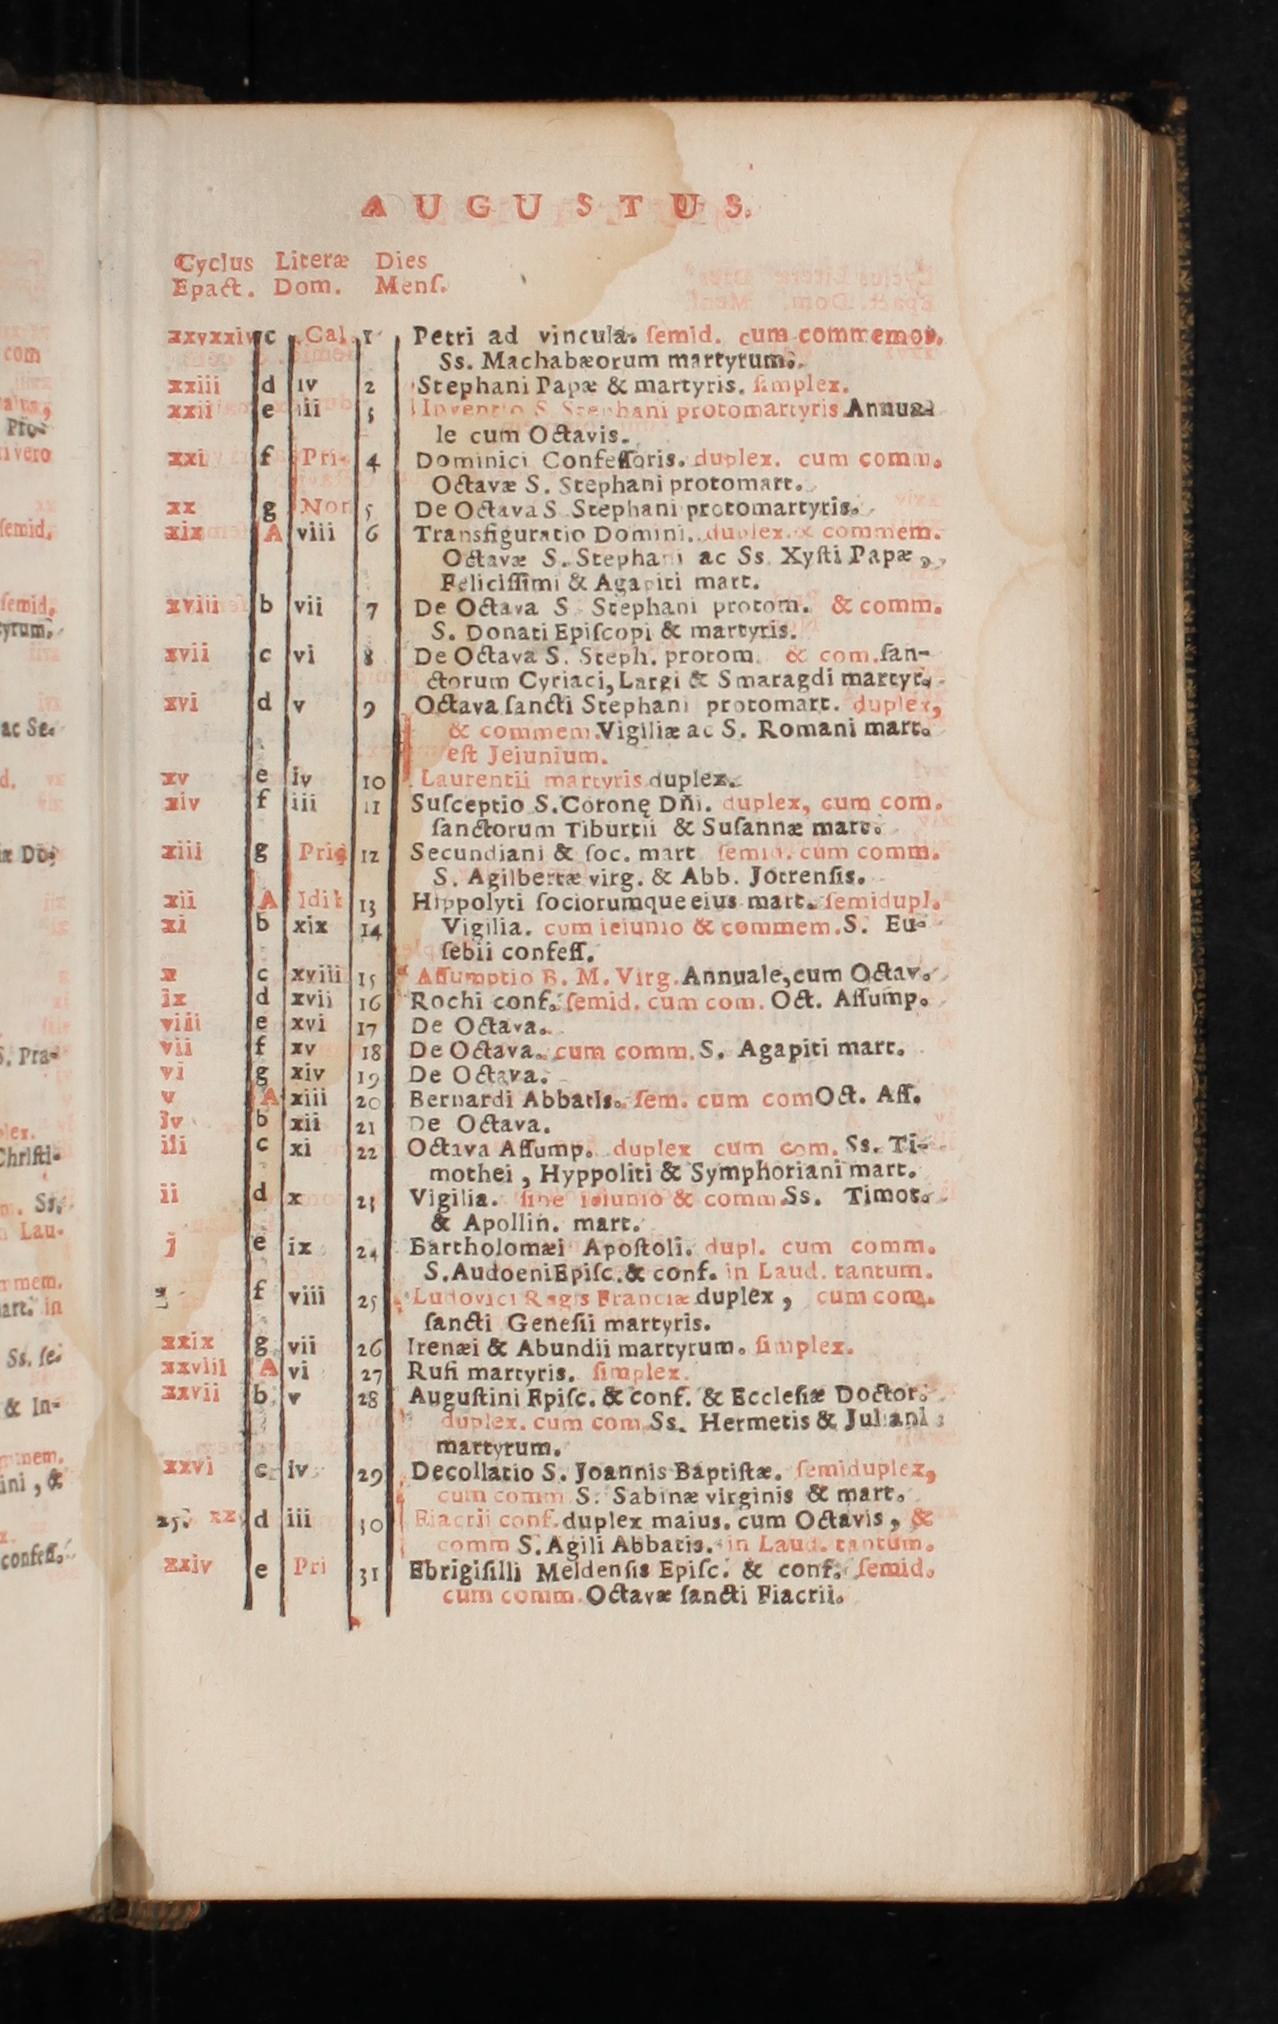 AUGUSTUS.
Cyclus Literæ Dies
Epact. Dom. Menſ.
xxvxxiv c Cal. 1 Petri ad vincula. ſemid. cum commemor.
Ss. Machabæorum martyrum.
xxiii d iv 2 Stephani Papæ & martyris. ſimplex.
xxii e iii 3 Inventio S. Stephani protomartyris Annua-
le cum Octavis.
xxi f Pri- 4 Dominici Confeſſoris. duplex. cum comm.
Octavæ S. Stephani protomart.
xx g Non 5 De Octava S. Stephani protomartyris.
xix A viii 6 Transfiguratio Domini. duplex. & commem.
Octavæ S. Stephani ac Ss. Xyſti Papæ,
Feliciſſimi & Agapiti mart.
xviii b vii 7 De Octava S. Stephani protom. & comm.
S. Donati Epiſcopi & martyris.
xvii c vi 8 De Octava S. Steph. protom. & com. ſan-
ctorum Cyriaci, Largi & Smaragdi martyr.
xvi d v 9 Octava ſancti Stephani protomart. duplex,
& commem. Vigiliæ ac S. Romani mart.
eſt Jeiunium.
xv e iv 10 Laurentii martyris duplex.
xiv f iii 11 Suſceptio S. Coronę Dñi. duplex, cum com.
ſanctorum Tiburtii & Suſannæ mart.
xiii g Prid 12 Secundiani & ſoc. mart. ſemid. cum comm.
S. Agilbertæ virg. & Abb. Jotrenſis.
xii A Idib 13 Hippolyti ſociorumque eius mart. ſemidupl.
xi b xix 14 Vigilia. cum ieiunio & commem. S. Eu-
ſebii confeſſ.
x c xviii 15 Aſſumptio B. M. Virg. Annuale, cum Octav.
ix d xvii 16 Rochi conf. ſemid. cum com. Oct. Aſſump.
viii e xvi 17 De Octava.
vii f xv 18 De Octava. cum comm. S. Agapiti mart.
vi g xiv 19 De Octava.
v A xiii 20 Bernardi Abbatis. ſem. cum com Oct. Aſſ.
iv b xii 21 De Octava.
iii c xi 22 Octava Aſſump. duplex cum com. Ss. Ti-
mothei, Hyppoliti & Symphoriani mart.
ii d x 23 Vigilia. ſine ieiunio & comm. Ss. Timot.
& Apollin. mart.
j e ix 24 Bartholomæi Apoſtoli. dupl. cum comm.
S. Audoeni Epiſc. & conf. in Laud. tantum.
f viii 25 Ludovici Regis Franciæ duplex, cum com.
ſancti Geneſii martyris.
xxix g vii 26 Irenæi & Abundii martyrum. ſimplex.
xxviii A vi 27 Rufi martyris. ſimplex.
xxvii b v 28 Auguſtini Epiſc. & conf. & Eccleſiæ Doctor.
duplex. cum com. Ss. Hermetis & Juliani
martyrum.
xxvi c iv 29 Decollatio S. Joannis Baptiſtæ. ſemiduplex,
cum comm. S. Sabinæ virginis & mart.
25. xx d iii 30 Fiacrii conf. duplex maius. cum Octavis, &
comm S. Agili Abbatis. in Laud. tantum.
xxiv e Pri 31 Ebrigiſilli Meldenſis Epiſc. & conf. ſemid.
cum comm. Octavæ ſancti Fiacrii.